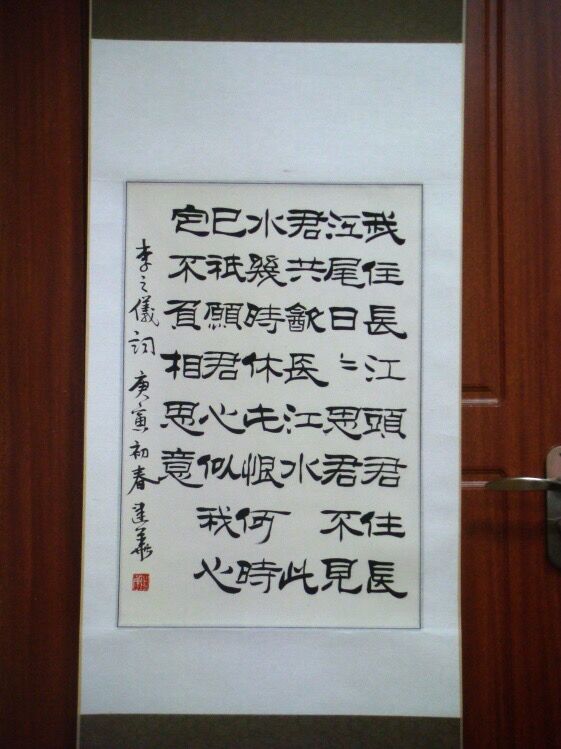 我住長江頭君住長
江尾日〻思君不見
君共㱃長江水此
水幾時休此恨何時
已祇願君心似我心
定不負相思意
李之儀詞 庚寅初春 建華